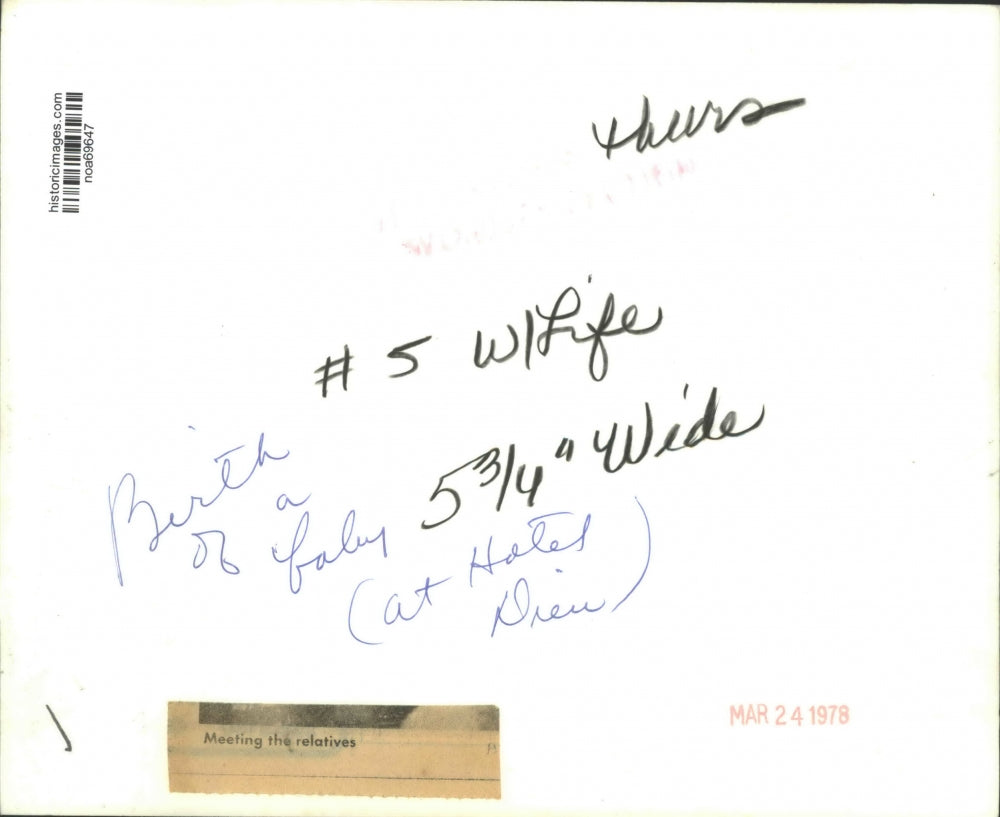 historicimages.com
noa69647
thurs
# 5 W/Life
5 3/4" Wide
Birth
of a baby
(at Hotel
Dieu)
Meeting the relatives
MAR 24 1978